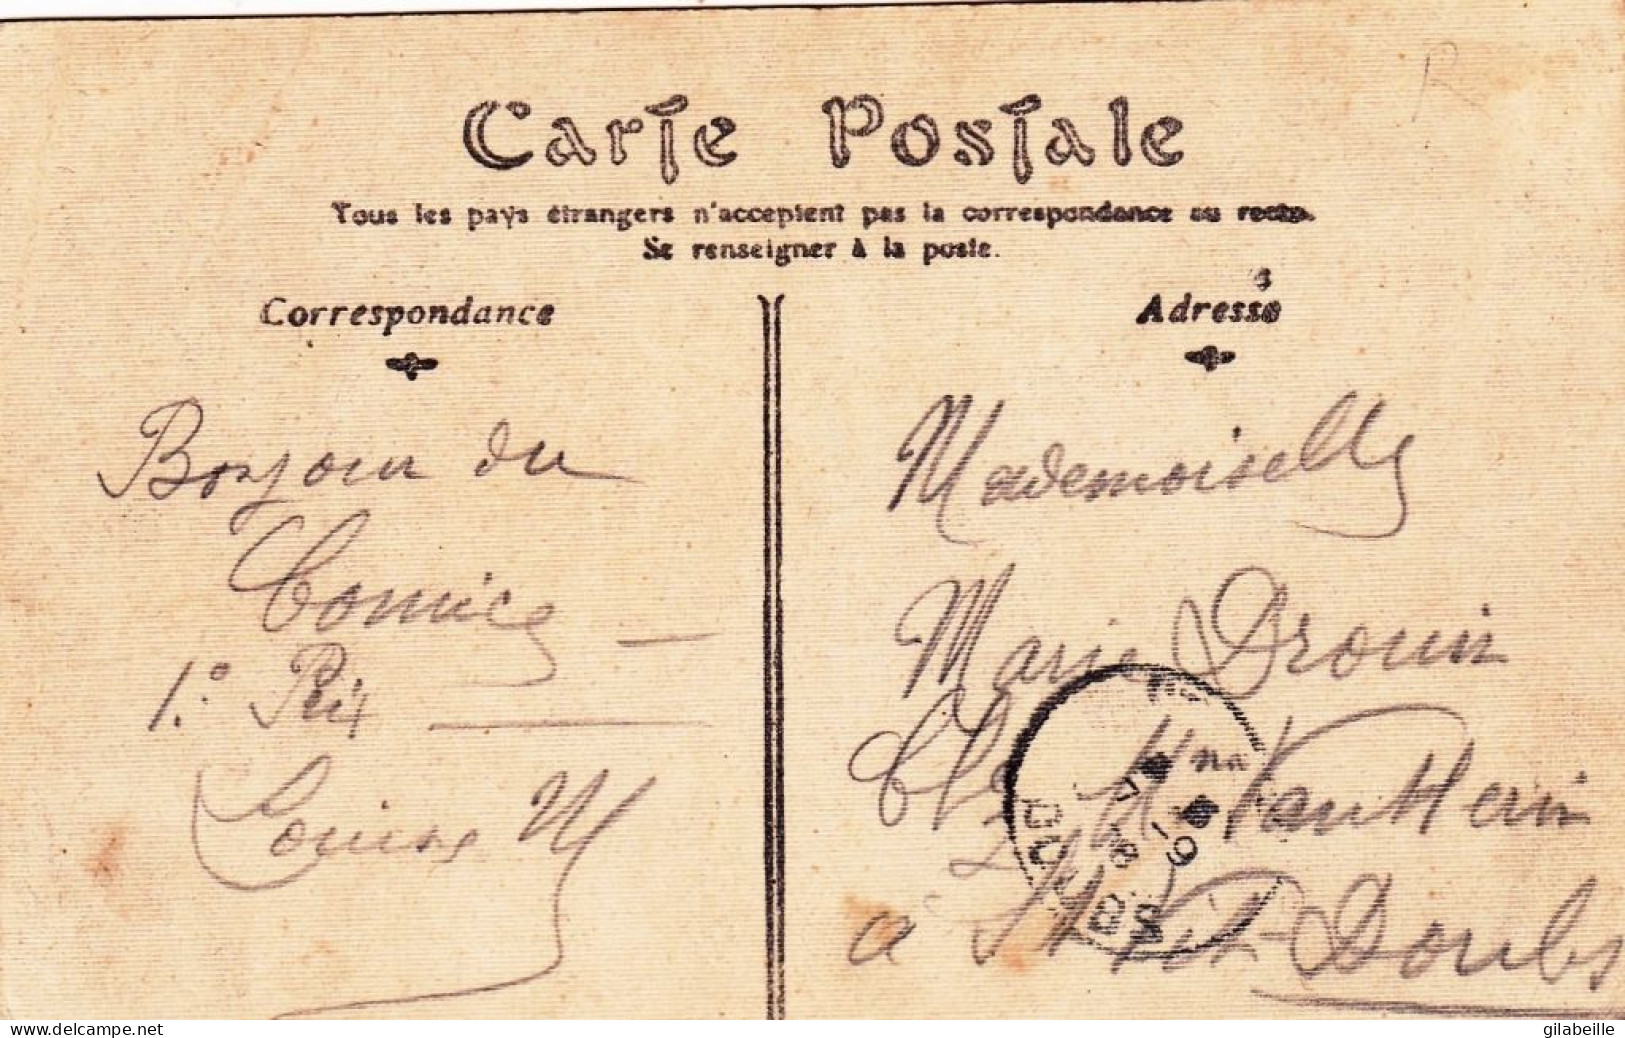 Carte Postale
Tous les pays étrangers n'acceptent pas la correspondance au recto.
Se renseigner à la poste.
Correspondance
Bonjour du
Comice
1° Prix
Louise M
Adresse
Mademoiselle
Marie Drouin
Ch Mme Vautherin
à St Vit Doubs
DOUBS
www.delcampe.net
gilabeille